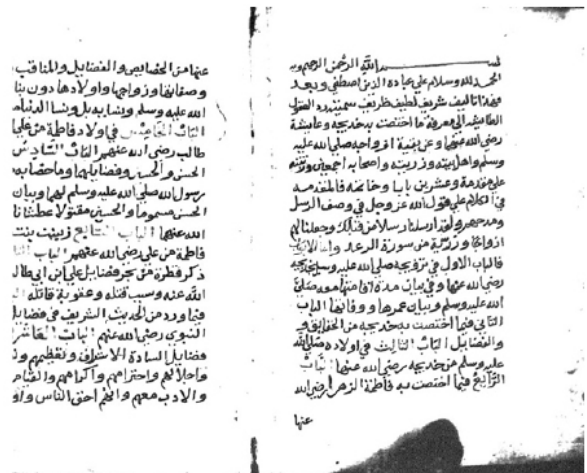 بسم الله الرحمن الرحيم وبه
الحمد لله وسلام علي عباده الذين اصطفي وبعد
فهذا تاليف شريف لطيف ظريف سميته
الي معرفة ما اختصت به خديجه وعايشة
رضي الله عنها وعن بقية ازواجه صلي الله عليه
وسلم واهل بيته وذريته واصحابه اجمعين ورتبته
علي مقدمة وعشرين بابا وخاتمه فالمقدمه
في الكلام علي قول الله عز وجل في وصف الرسل
ومدحهم ولقد ارسلنا رسلا من قبلك وجعلنا لهم
ازواجا وذرية من سورة الرعد واما الابواب
فالباب الاول في تزويجه صلي الله عليه وسلم خديجه
رضي الله عنها وفي بيان مدة اقامتها معه صلي
الله عليه وسلم وبيان عمرها ووفاتها الباب
الثاني فيما اختصت به خديجه من الخصايص
والفضايل الباب الثالث في اولاده صلي الله
عليه وسلم من خديجه رضي الله عنها الباب
الرابع فيما اختصت به فاطمة الزهرا رضي الله
عنها
عنها من الخصايص والفضايل والمناقب
وصفاتها وزواجها واولادها دون بنا
الله عليه وسلم ونسايه بل ونسا الدنيا
الباب الخامس في اولاد فاطمة من علي
طالب رضي الله عنهم الباب السادس
الحسن والحسين وفضايلهما وما خصا به
رسول الله صلي الله عليه وسلم لهما وبيان
الحسن مسموما والحسين مقتولا عطشانا
الله عنهما الباب السابع زينب بنت
فاطمة من علي رضي الله عنهم الباب الثا
ذكر قطرة من بحر فضايل علي ابن ابي طال
الله عنه وسبب قتله وعقوبة قاتله ال
فيما ورد من الحديث الشريف في فضايل
النبوي رضي الله عنهم الباب العاشر
فضايل السادة الاشراف وتعظيمهم
واجلالهم واحترامهم واكرامهم والقيام
والادب معهم وانهم احق الناس واو